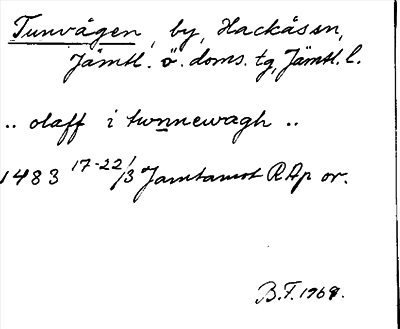 Tunvågen, by, Hackås sn,
Jämtl. ö. doms. tg, Jämtl. l.
.. olaff i twnnewagh ..
1483 17-22/3 Jamtamot RAp or.
B.F. 1969.